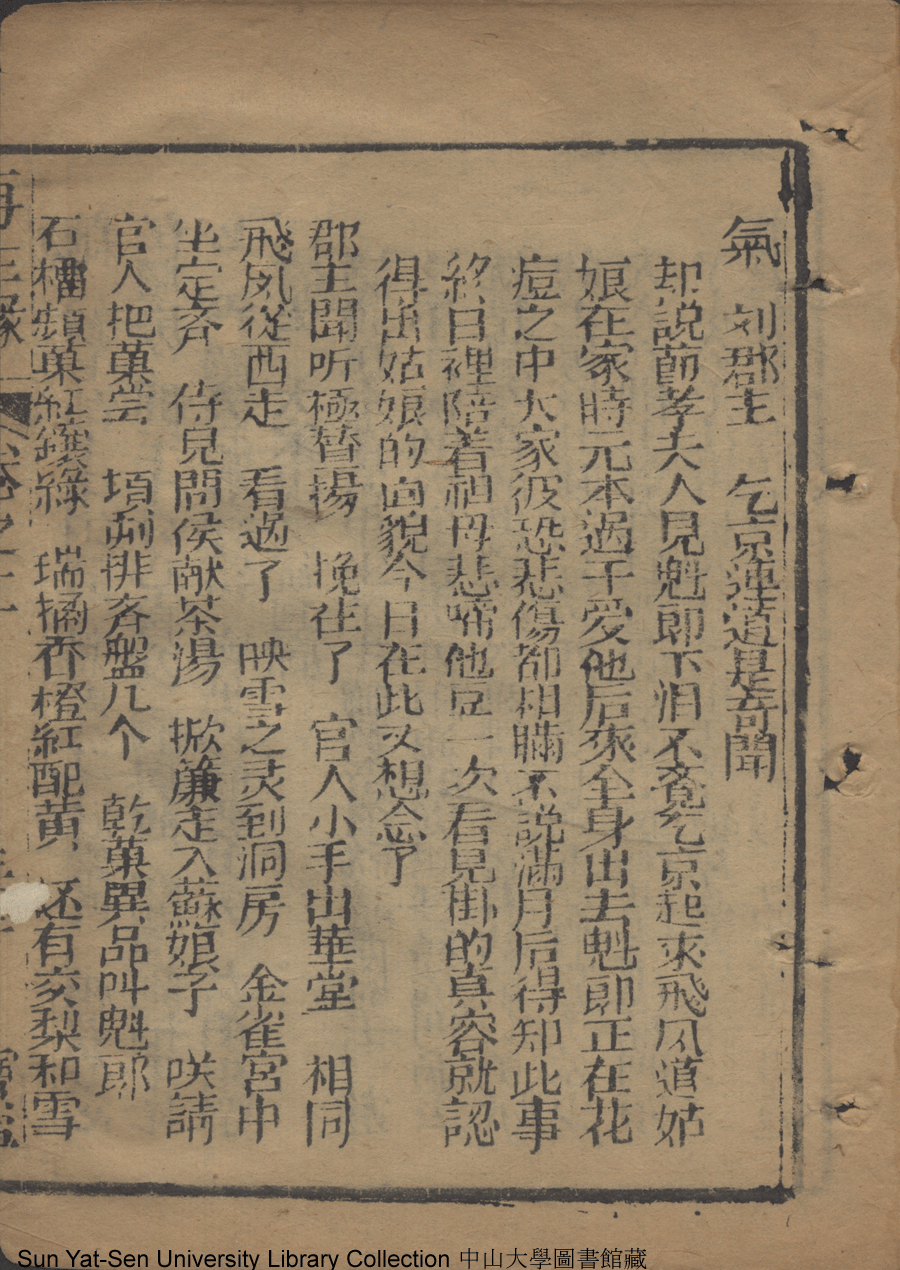 氣　刘郡主　乞京連道是奇聞
却說莭孝夫人見魁郎下泪不斍乞京起來飛凤道姑
娘在家時元本過于愛他后來全身出去魁郎正在花
痘之中大家彼恐悲傷都相瞞不說滿月后得知此事
終日裡陪着祖母悲啼他豆一次看見掛的真容就認
得出姑娘的面貌今日在此又想念了
郡主聞听極替揚　挽住了　官人小手出華堂　相同
飛凤從西走　看過了　映雪之灵到洞房　金雀宮中
坐定齐　侍兒問侯献茶湯　掀簾走入蘇娘子　咲請
官人把菓尝　項刻排齐盤几个　乾菓異品叫魁郎
石榴頻菓紅鑲綠　瑞橘香橙紅配黄　还有亥梨和雪
再生緣　卷之十
Sun Yat-Sen University Library Collection 中山大學圖書館藏